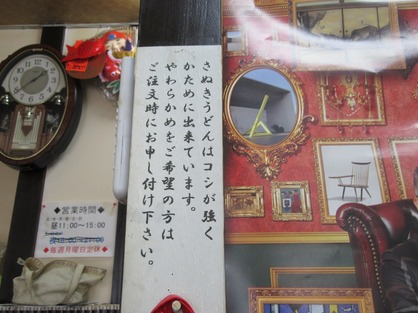 さぬきうどんはコシが強く
かために出来ています。
やわらかめをご希望の方は
ご注文時にお申し付け下さい。
◆営業時間◆
昼11:00～15:00
◆毎週月曜日定休◆